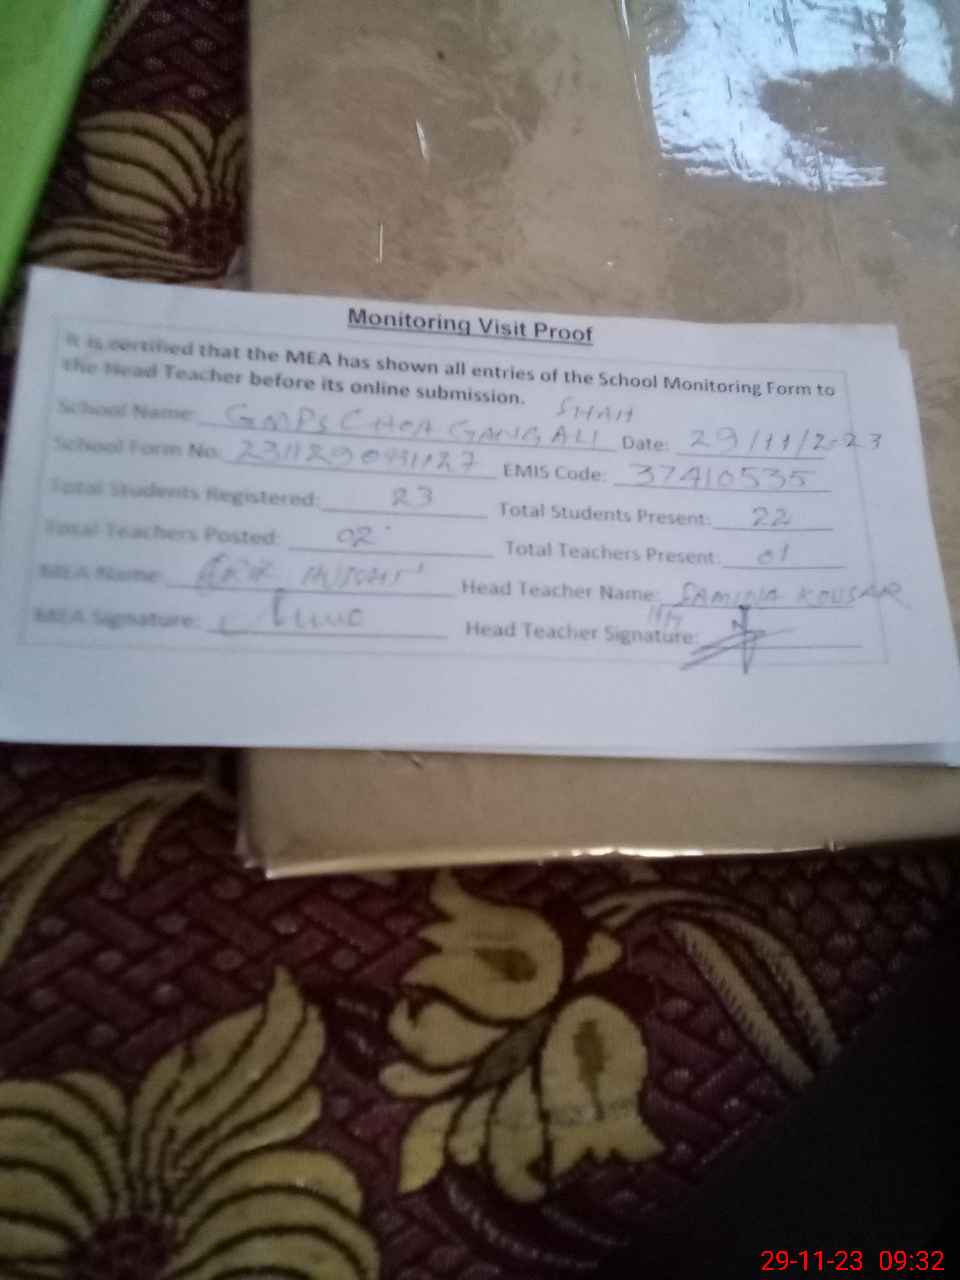 Monitoring Visit Proof
It is certified that the MEA has shown all entries of the School Monitoring Form to
the Head Teacher before its online submission.
SHAH
School Name: GMPS CHOA GANG ALI Date: 29/11/2023
School Form No: EMIS Code: 37410535
Total Students Registered: 23 Total Students Present: 22
Total Teachers Posted: 02 Total Teachers Present: 01
MEA Name: Head Teacher Name: SAMINA KOUSAR
MEA Signature: Head Teacher Signature:
29-11-23 09:32